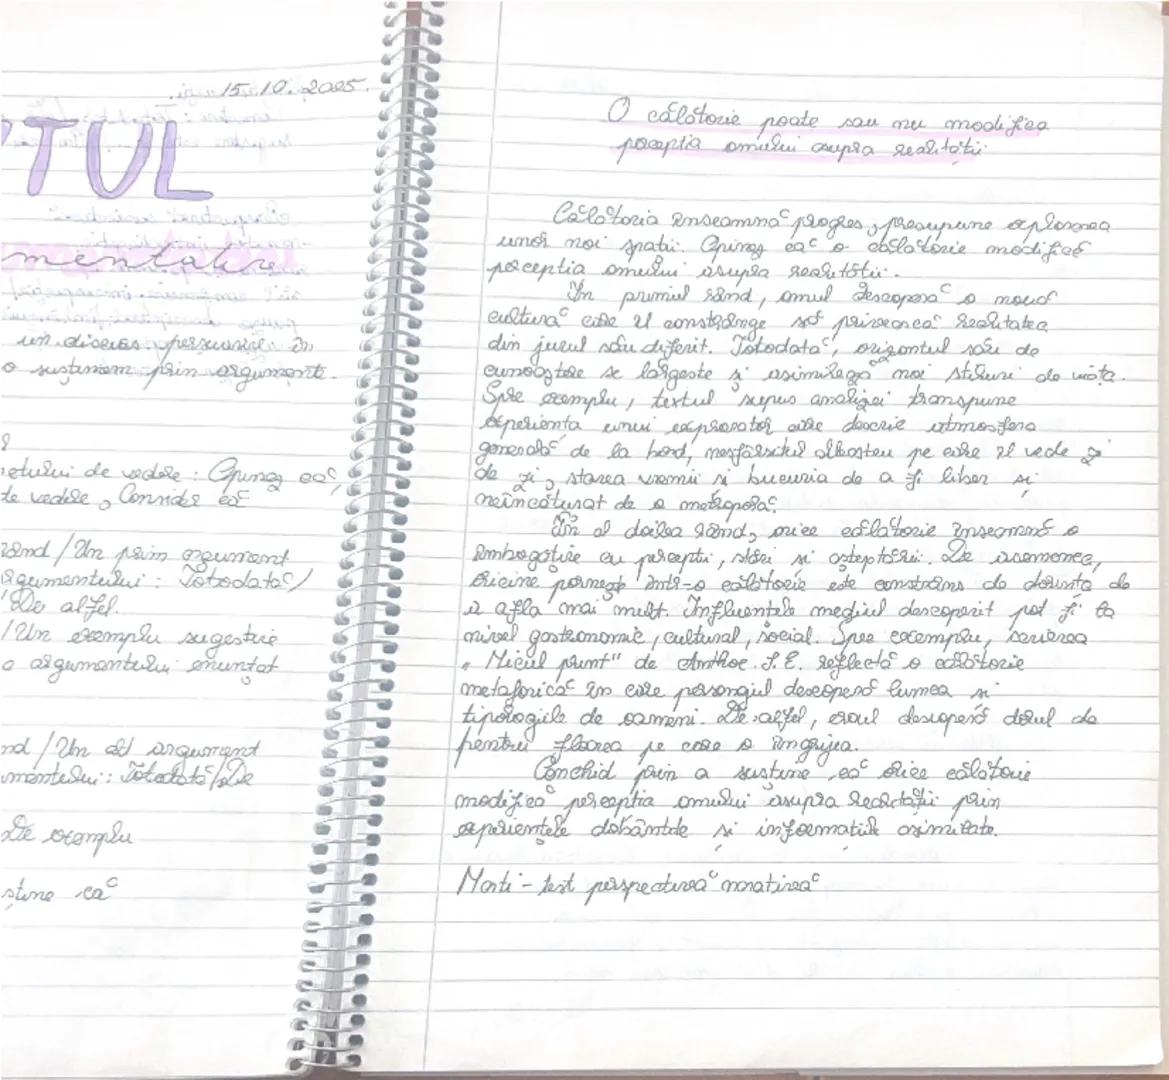 15.10.2025.
TUL
mentative
un discurs persuasiv în
o susținem prin argumente.
de vedere: Opinez că
de vedere, Consider că
rând / Un prim argument
argumentului: Totodată /
De altfel.
/ Un exemplu sugestiv
a argumentului enunțat
nd / Un alt argument
mentului: Totodată / De
De exemplu
stine că
O călătorie poate sau nu modifica
percepția omului asupra realității
Călătoria înseamnă progres, presupune explorarea
unor noi spații. Opinez că o călătorie modifică
percepția omului asupra realității.
În primul rând, omul descoperă o nouă
cultură care îl constrânge să privească realitatea
din jurul său diferit. Totodată, orizontul său de
cunoaștere se lărgește și asimilează noi stiluri de viață.
Spre exemplu, textul supus analizei transpune
experiența unui explorator care descrie atmosfera
generală de la bord, nesfârșitul albastru pe care îl vede zi
de zi, starea vremii și bucuria de a fi liber și
neîncătușat de o metropolă.
În al doilea rând, orice călătorie înseamnă o
îmbogățire cu percepții, stări și așteptări. De asemenea,
oricine pornește într-o călătorie este constrâns de dorința de
a afla mai mult. Influențele mediul descoperit pot fi la
nivel gastronomic, cultural, social. Spre exemplu, scrierea
"Micul prinț" de Anthoe. S. E. reflectă o călătorie
metaforică în care personajul descoperă lumea și
tipologiile de oameni. De altfel, eroul descoperă dorul de
pentru floarea pe care o îngrijea.
Conchid prin a susține că orice călătorie
modifică percepția omului asupra realității prin
experiențele dobântde și informațiile asimilate.
Marți - test perspectivă narativă